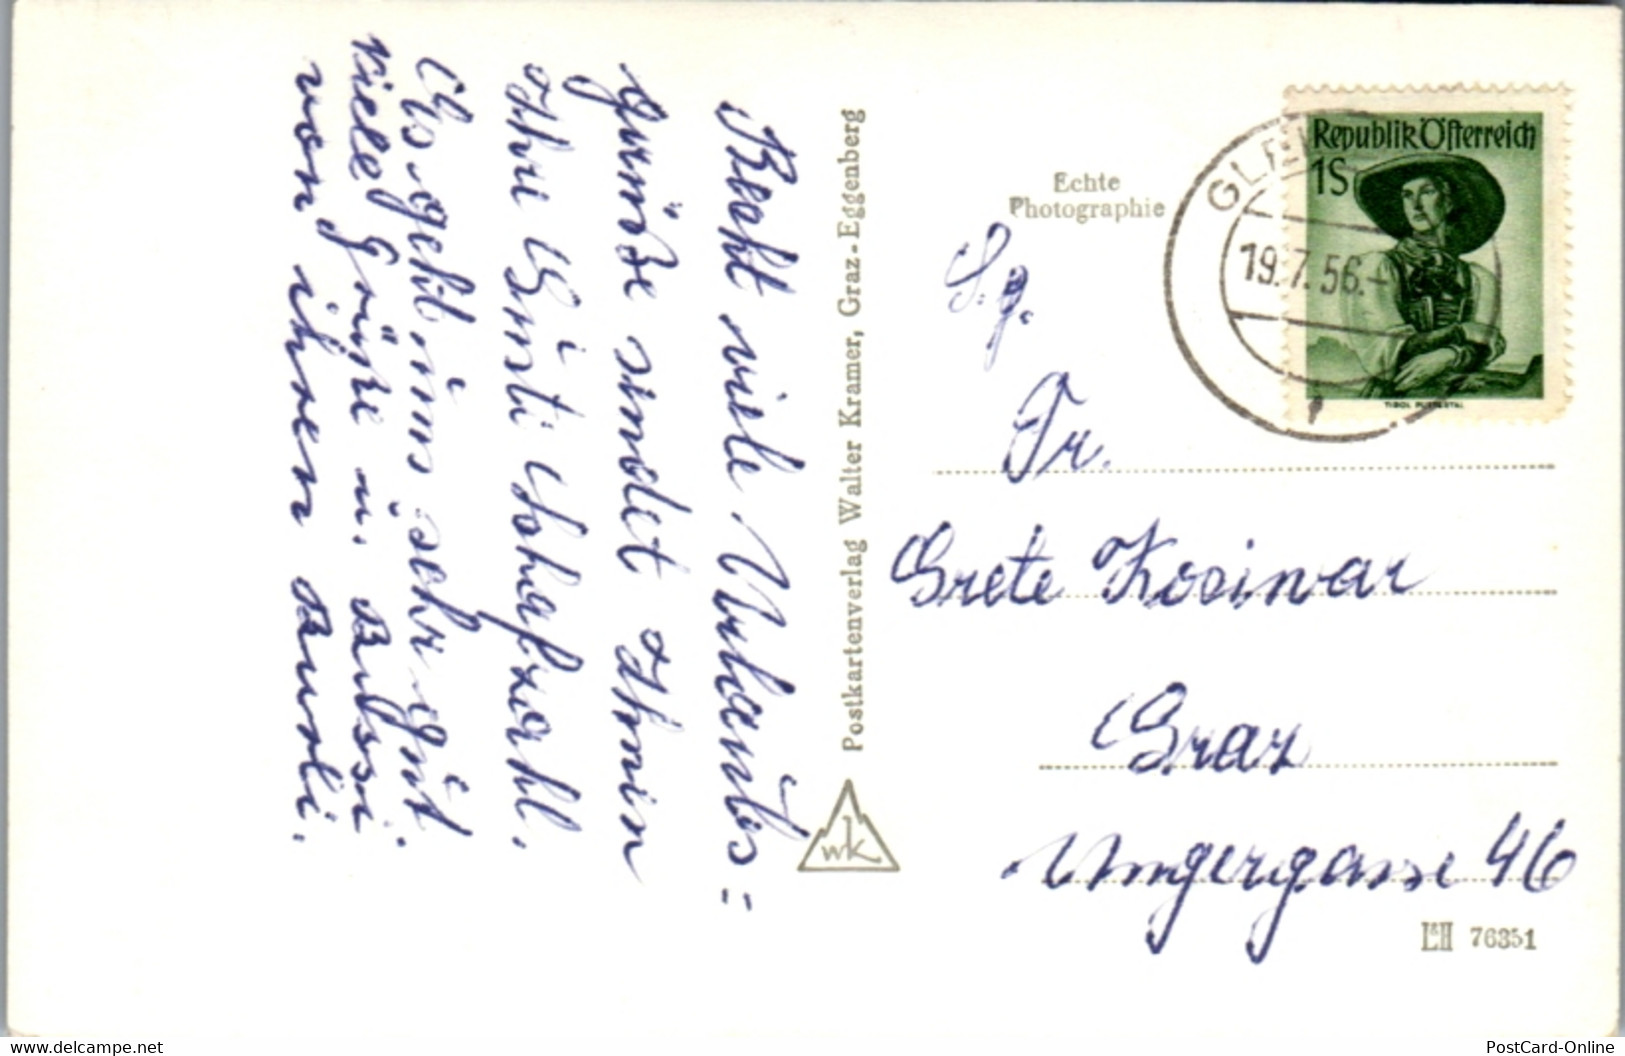 Recht viele Urlaubs=
grüße sendet Ihnen
Ihre Gusti Schafzahl.
Es geht uns sehr gut
viele Grüße u. Bussi
von ihren Burli.
Postkartenverlag Walter Kramer, Graz-Eggenberg
wk
Echte
Photographie
Republik Österreich
1S
TIROL PUSTERTAL
19.7.56.-
S.g.
Fr.
Grete Kosiwar
Graz
Ungergasse 46
L&H 76351
www.delcampe.net
PostCard-Online